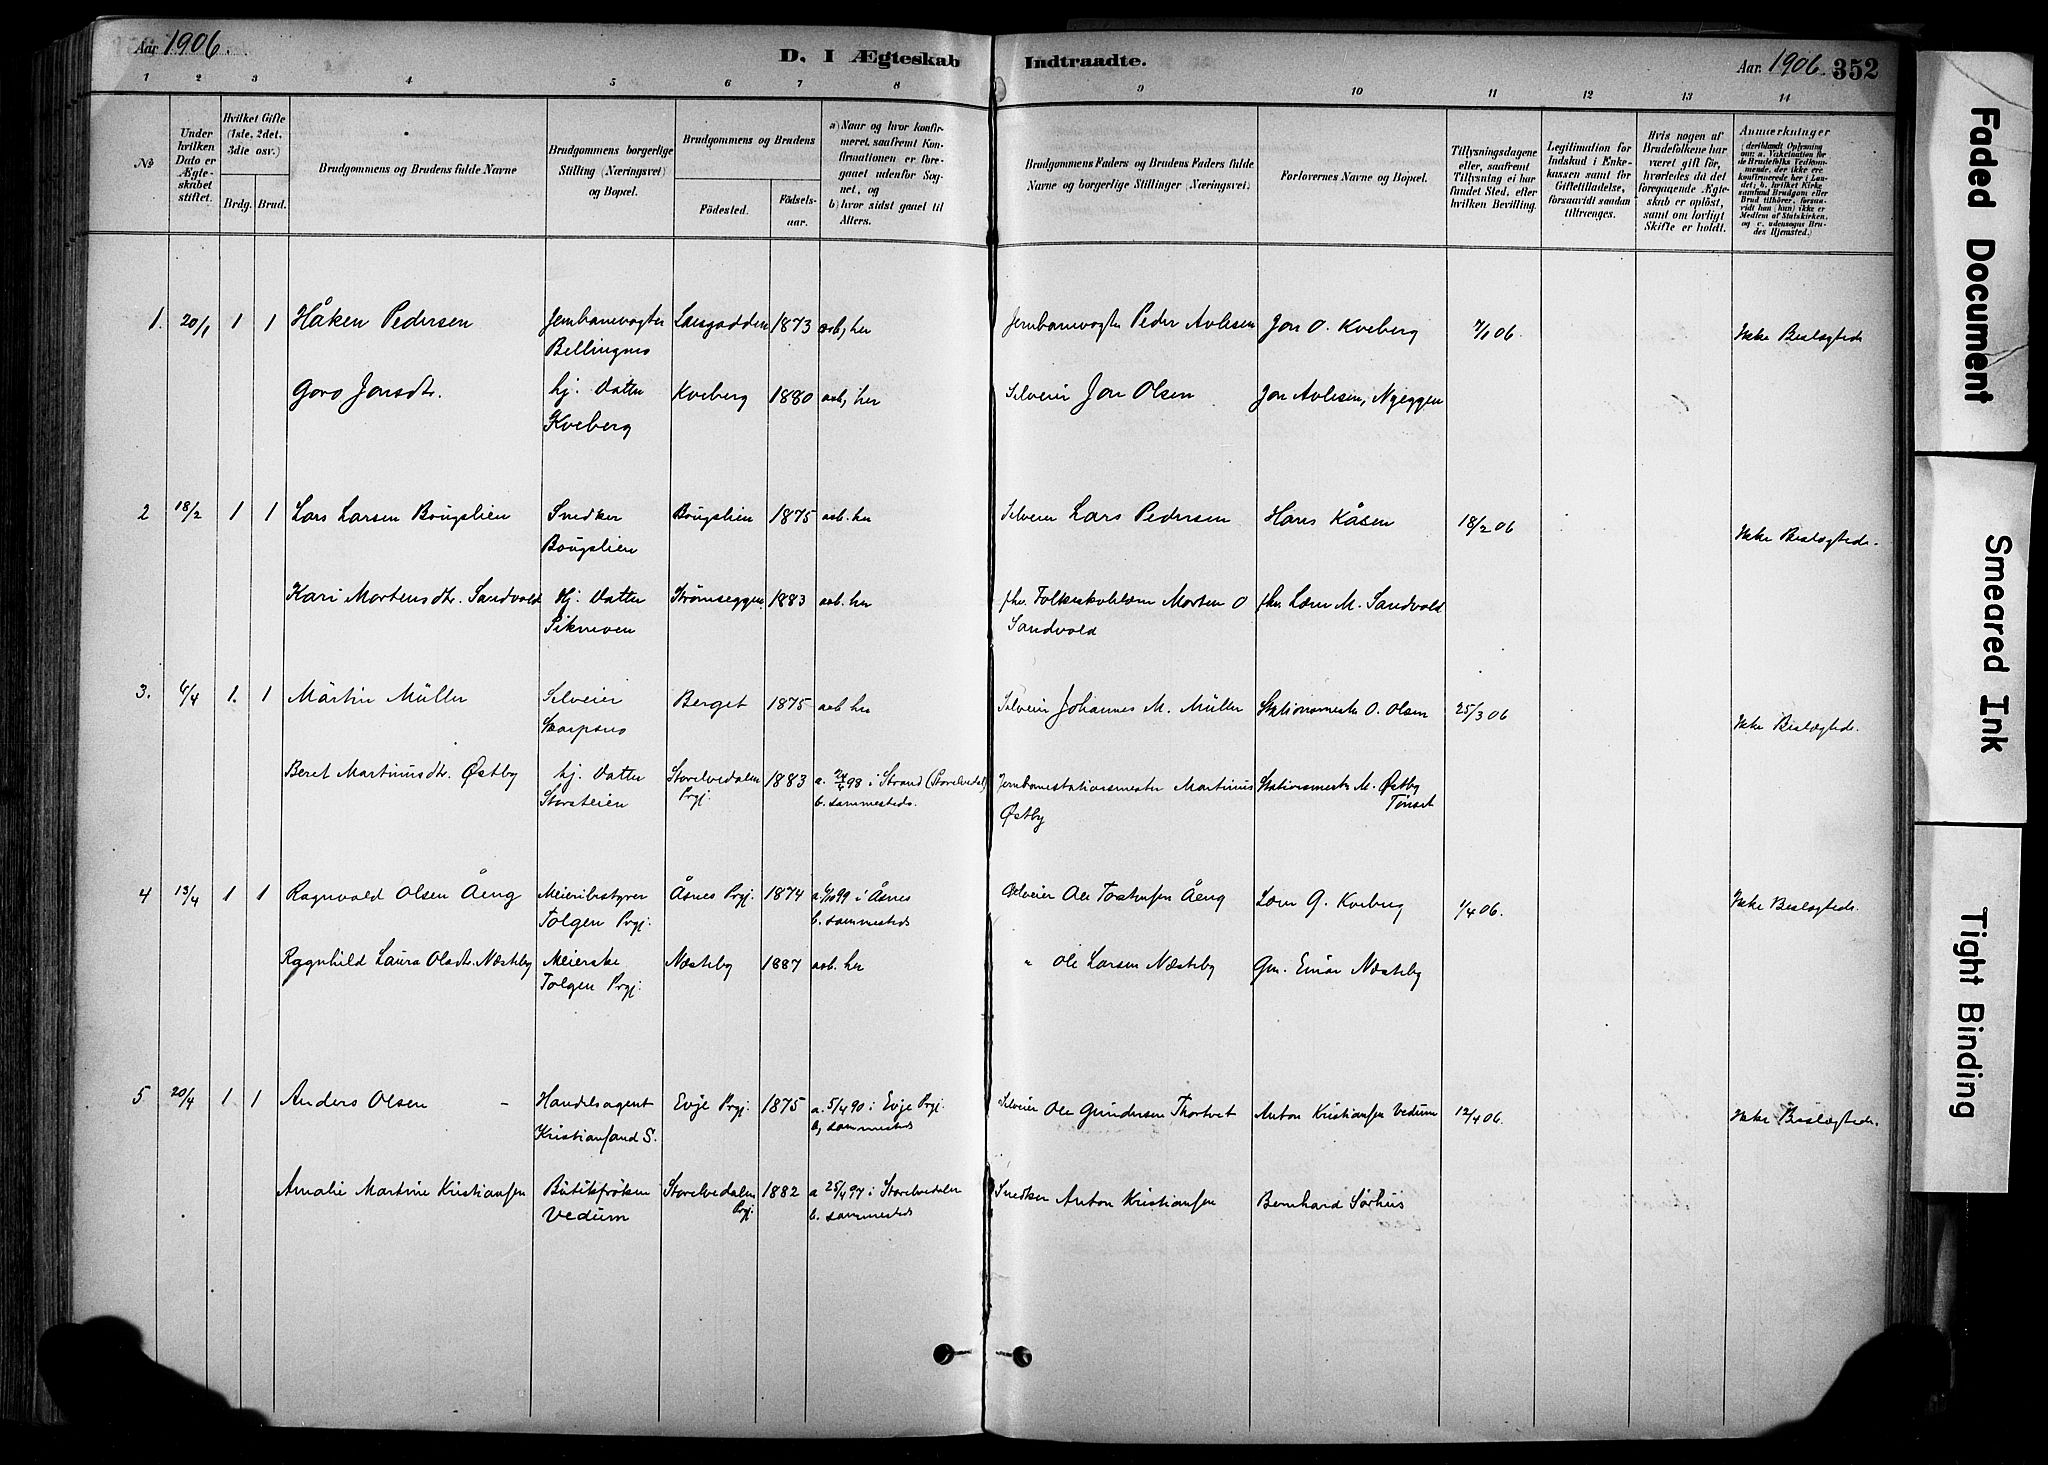 Aar 1906.
D. I Ægteskab
Indtraadte.
Aar. 1906.
352
1 2 3 4 5 6 7 8 9 10 11 12 13 14
No
Under hvilken Dato er Ægteskabet stiftet.
Hvilket Gifte (1ste, 2det, 3die osv.)
Brdg. Brud.
Brudgommens og Brudens fulde Navne
Brudgommens borgerlige Stilling (Næringsvei) og Bopæl.
Brudgommens og Brudens
Födested.
Födselsaar.
a) Naar og hvor konfirmeret, saafremt Konfirmationen er foregaaet udenfor Sognet, og
b) hvor sidst gaaet til Alters.
Brudgommens Faders og Brudens Faders fulde Navne og borgerlige Stillinger (Næringsvei).
Forlovernes Navne og Bopæl.
Tillysningsdagene eller, saafremt Tillysning ei har fundet Sted, efter hvilken Bevilling.
Legitimation for Indskud i Enkekassen samt for Giftetilladelse, forsaavidt saadan tiltrænges.
Hvis nogen af Brudefolkene har været gift för, hvorledes da det foregaaende Ægteskab er oplöst, samt om lovligt Skifte er holdt.
Anmærkninger (deriblandt Oplysning om: a. Vakcination for de Brudefolks Vedkommende, der ikke ere konfirmerede her i Landet; b. hvilket Kirkesamfund Brudgom eller Brud tilhörer, forsaavidt han (hun) ikke er Medlem af Statskirken, og c. udensogns Brudes Hjemsted.)
1. 20/1 1 1 Håken Pedersen Jernbanevogter 1873 a ob, her Jernbanevogter Peder Avlesen Jon O. Kveberg 7/1 06. Ikke Beslægtede
Bellingmo
Goro Jonsdtr. hj. Datter Kveberg 1880 aob, her Selveier Jon Olsen Jon Avlesen, Nyeggen
Kveberg
2 18/2 1 1 Lars Larsen Bougslien Snedker Bougslien 1875 aob. her Selveier Lars Pedersen Hans Kåsen 18/2 06 Ikke Beslægtede.
Bougslien
Kari Mortensdtr. Sandvold Hj. Datter Strømseggen 1883 aob. her fhv. Folkeskolelærer Morten O fhv. Lærer M. Sandvold
Sandvold
3. 6/4 1. 1 Martin Müller Selveier Berget 1875 aob her Selveier Johannes M. Müller Stationsmester O. Olsen 25/3 06 Ikke Beslægtede.
Beret Martinusdtr. Østby hj. Datter Storelvedalen 1883 a. 98 i Strand (Storelvedal) Jernbanestationsmester Martinus Stationsmester M. Østby
Storsteien Prgj. b. sammesteds. Østby Tønset
4 13/4 1 1 Ragnvald Olsen Åeng Meieribestyrer Åsnes Prgj. 1874 a 99 i Åsnes Selveier Ole Åeng Lærer G. Kveberg 1/4 06. Ikke Beslægtede.
Tolgen Prgj. b. sammesteds
Ragnhild Laura Olsdtr. Næsteby Meierske Næsteby 1887 aob. her " Ole Larsen Næsteby Gm. Einar Næsteby
Tolgen Prgj.
5 20/4 1 1 Anders Olsen - Handelsagent Evje Prgj. 1875 a. 5/4 90 i Evje Prgj. Selveier Ole Gundersen Thortvet Anton Kristiansen Vedum 12/4 06. Ikke Beslægtede.
Kristiansand S. b, sammesteds
Amalie Martine Kristiansen Butikfrøken Storelvedalen 1882 a 25/4 97 i Storelvedalen Snedker Anton Kristiansen Bernhard Sørhus
Vedum Prgj. b. sammesteds
Faded Document
Smeared Ink
Tight Binding